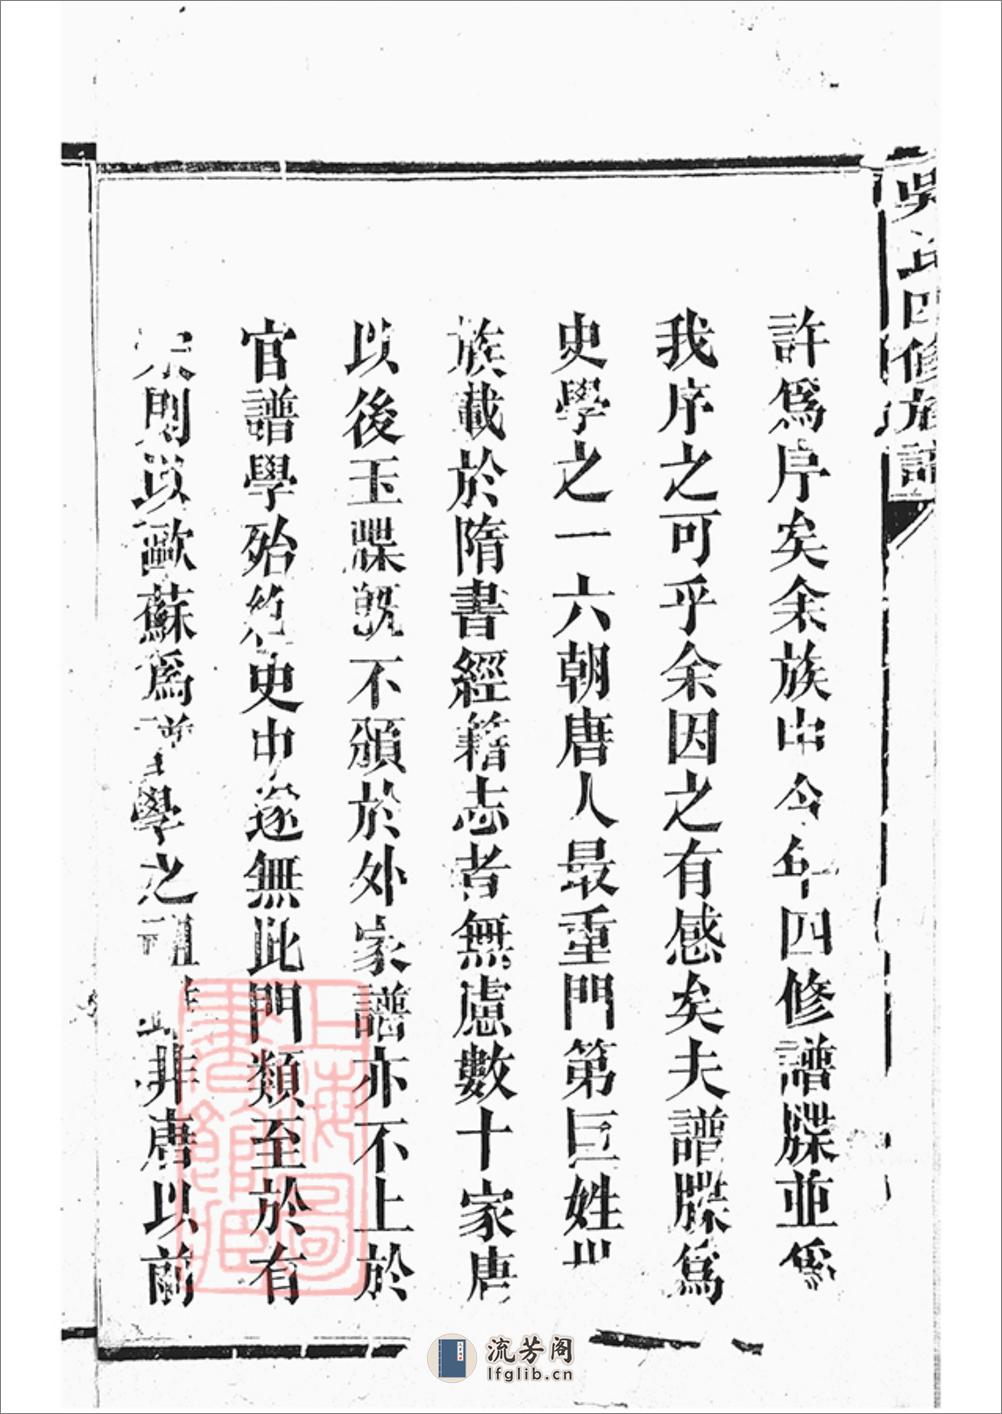 吳氏四修族譜
許爲序矣余族由今年四修譜牒並爲
我序之可乎余因之有感矣夫譜牒爲
史學之一六朝唐人最重門第巨姓世
族載於隋書經籍志者無慮數十家唐
以後玉牒既不頒於外家譜亦不上於
官譜學殆絕史中遂無此門類至於有
宋則以歐蘇爲譜學之祖非唐以前
上海圖書館藏
流芳阁
lfglib.cn